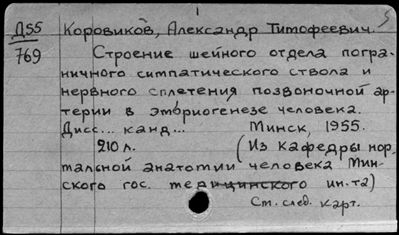 Д55 Коровиков, Александр Тимофеевич.
769 Строение шейного отдела погра-
ничного симпатического ствола и
нервного сплетения позвоночной ар-
терии в эмбриогенезе человека.
Дисс... канд... Минск, 1955.
210 л. (Из кафедры нор
мальной анатомии человека Мин-
ского гос. медицинского ин-та)
См. след. карт.